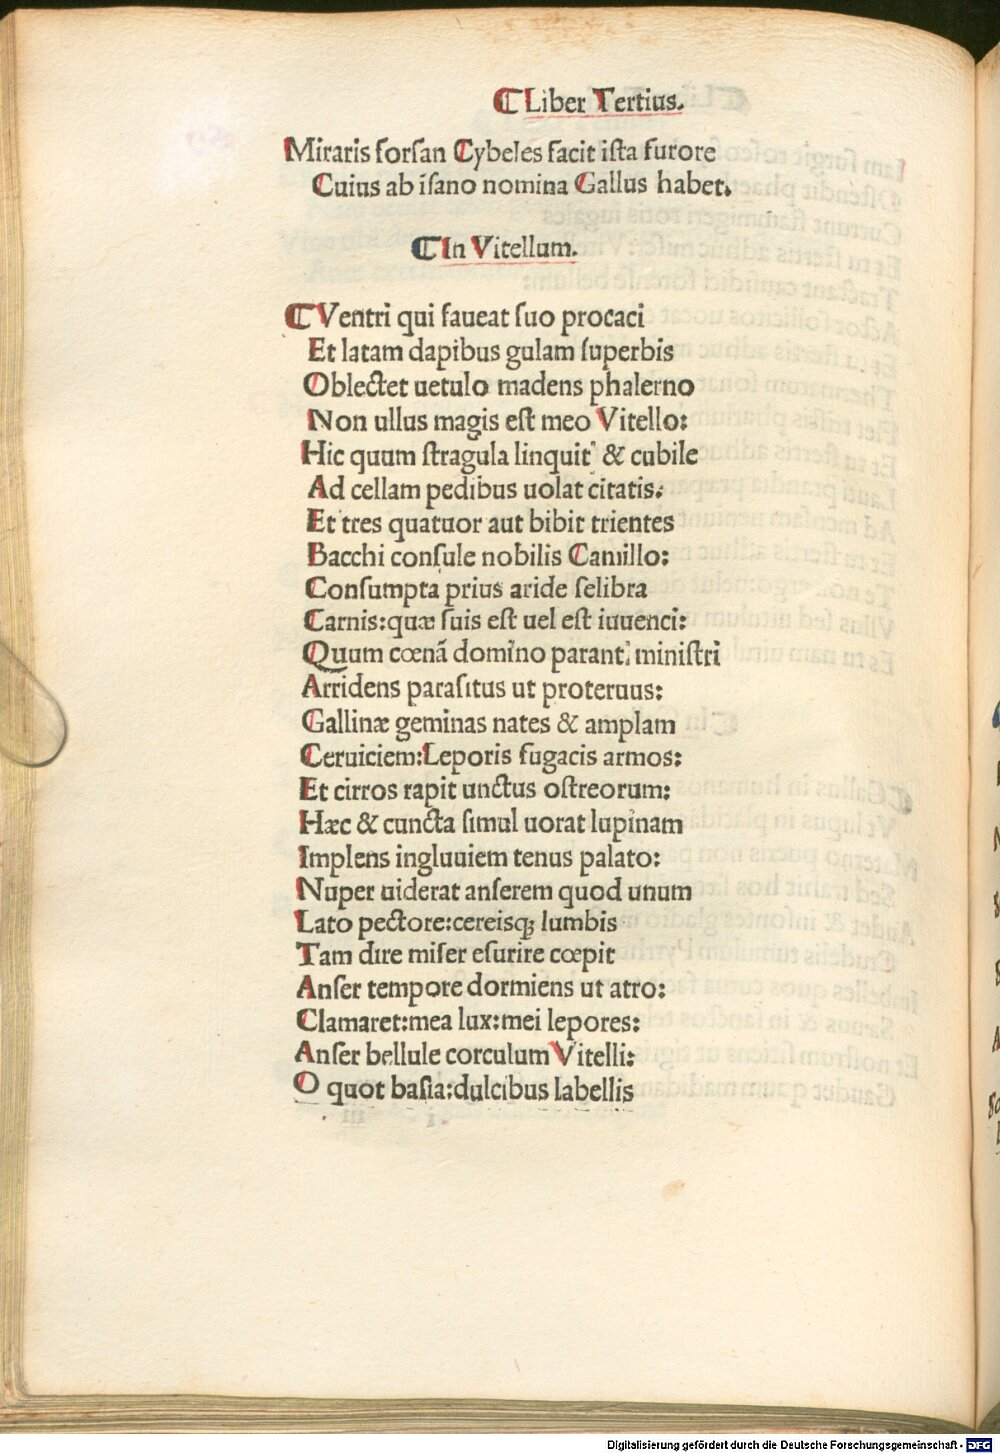 Liber Tertius.
Miraris forſan Cybeles facit iſta furore
Cuius ab iſano nomina Gallus habet.
In Vitellum.
Ventri qui faueat ſuo procaci
Et latam dapibus gulam ſuperbis
Oblectet uetulo madens phalerno
Non ullus magis eſt meo Vitello:
Hic quum ſtragula linquit & cubile
Ad cellam pedibus uolat citatis:
Et tres quatuor aut bibit trientes
Bacchi conſule nobilis Camillo:
Conſumpta prius aride ſelibra
Carnis:quæ ſuis eſt uel eſt iuuenci:
Quum cœnã domino parant miniſtri
Arridens paraſitus ut proteruus:
Gallinæ geminas nates & amplam
Ceruiciem:Leporis fugacis armos:
Et cirros rapit unctus oſtreorum:
Hæc & cuncta ſimul uorat lupinam
Implens ingluuiem tenus palato:
Nuper uiderat anſerem quod unum
Lato pectore:cereisq; lumbis
Tam dire miſer eſurire cœpit
Anſer tempore dormiens ut atro:
Clamaret:mea lux:mei lepores:
Anſer bellule corculum Vitelli:
O quot baſia:dulcibus labellis
Digitalisierung gefördert durch die Deutsche Forschungsgemeinschaft - DFG